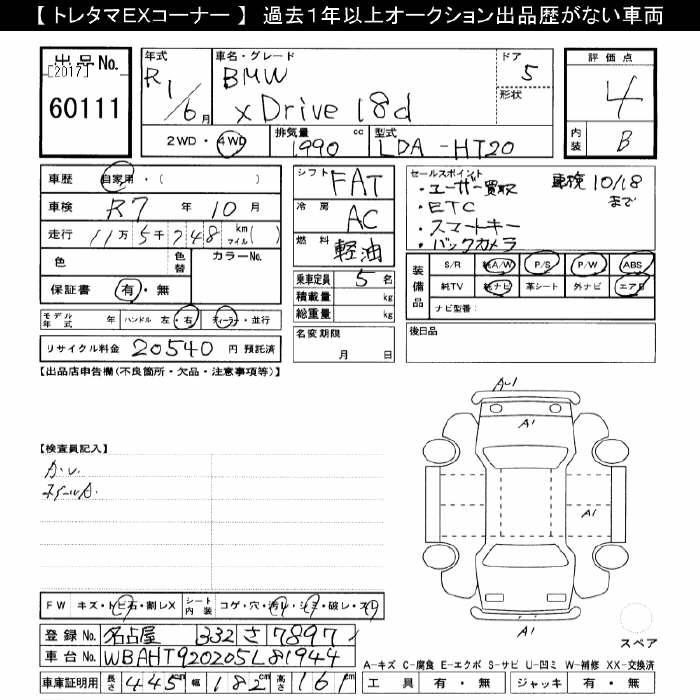 【 トレタマEXコーナー 】 過去1年以上オークション出品歴がない車両
出品No.
[2017]
60111
年式
R1/6月
車名・グレード
BMW
xDrive 18d
ドア
5
形状
評価点
4
内装
B
2WD・4WD
排気量 1990 cc
型式 LDA-HT20
車歴 自家用・( )
車検 R7 年 10 月
走行 11万5千748 km マイル( )
色 色替 カラーNo.
保証書 有・無
モデル年式 年 ハンドル 左・右 ディーラー・並行
リサイクル料金 20540 円 預託済
シフト FAT
冷房 AC
燃料 軽油
乗車定員 5 名
積載量 kg
総重量 kg
名変期限 月 日
セールスポイント
・ユーザー買取 車検10/18まで
・ETC
・スマートキー
・バックカメラ
装備品
S/R 純A/W P/S P/W ABS
純TV 純ナビ 革シート 外ナビ エアB
ナビ型番:
後日品
【出品店申告欄(不良箇所・欠品・注意事項等)】
【検査員記入】
A.U.
A-U
A1
A1
A1
スペア
FW キズ・トビ石・割レX シート内装 コゲ・穴・汚レ・シミ・破レ・スレ
登録No. 名古屋 332 さ 7897
車台No. WBAHT920205L81944
車庫証明用 長さ 445 cm 幅 182 cm 高さ 161 cm
A-キズ C-腐食 E-エクボ S-サビ U-凹ミ W-補修 XX-交換済
工具 有・無 ジャッキ 有・無